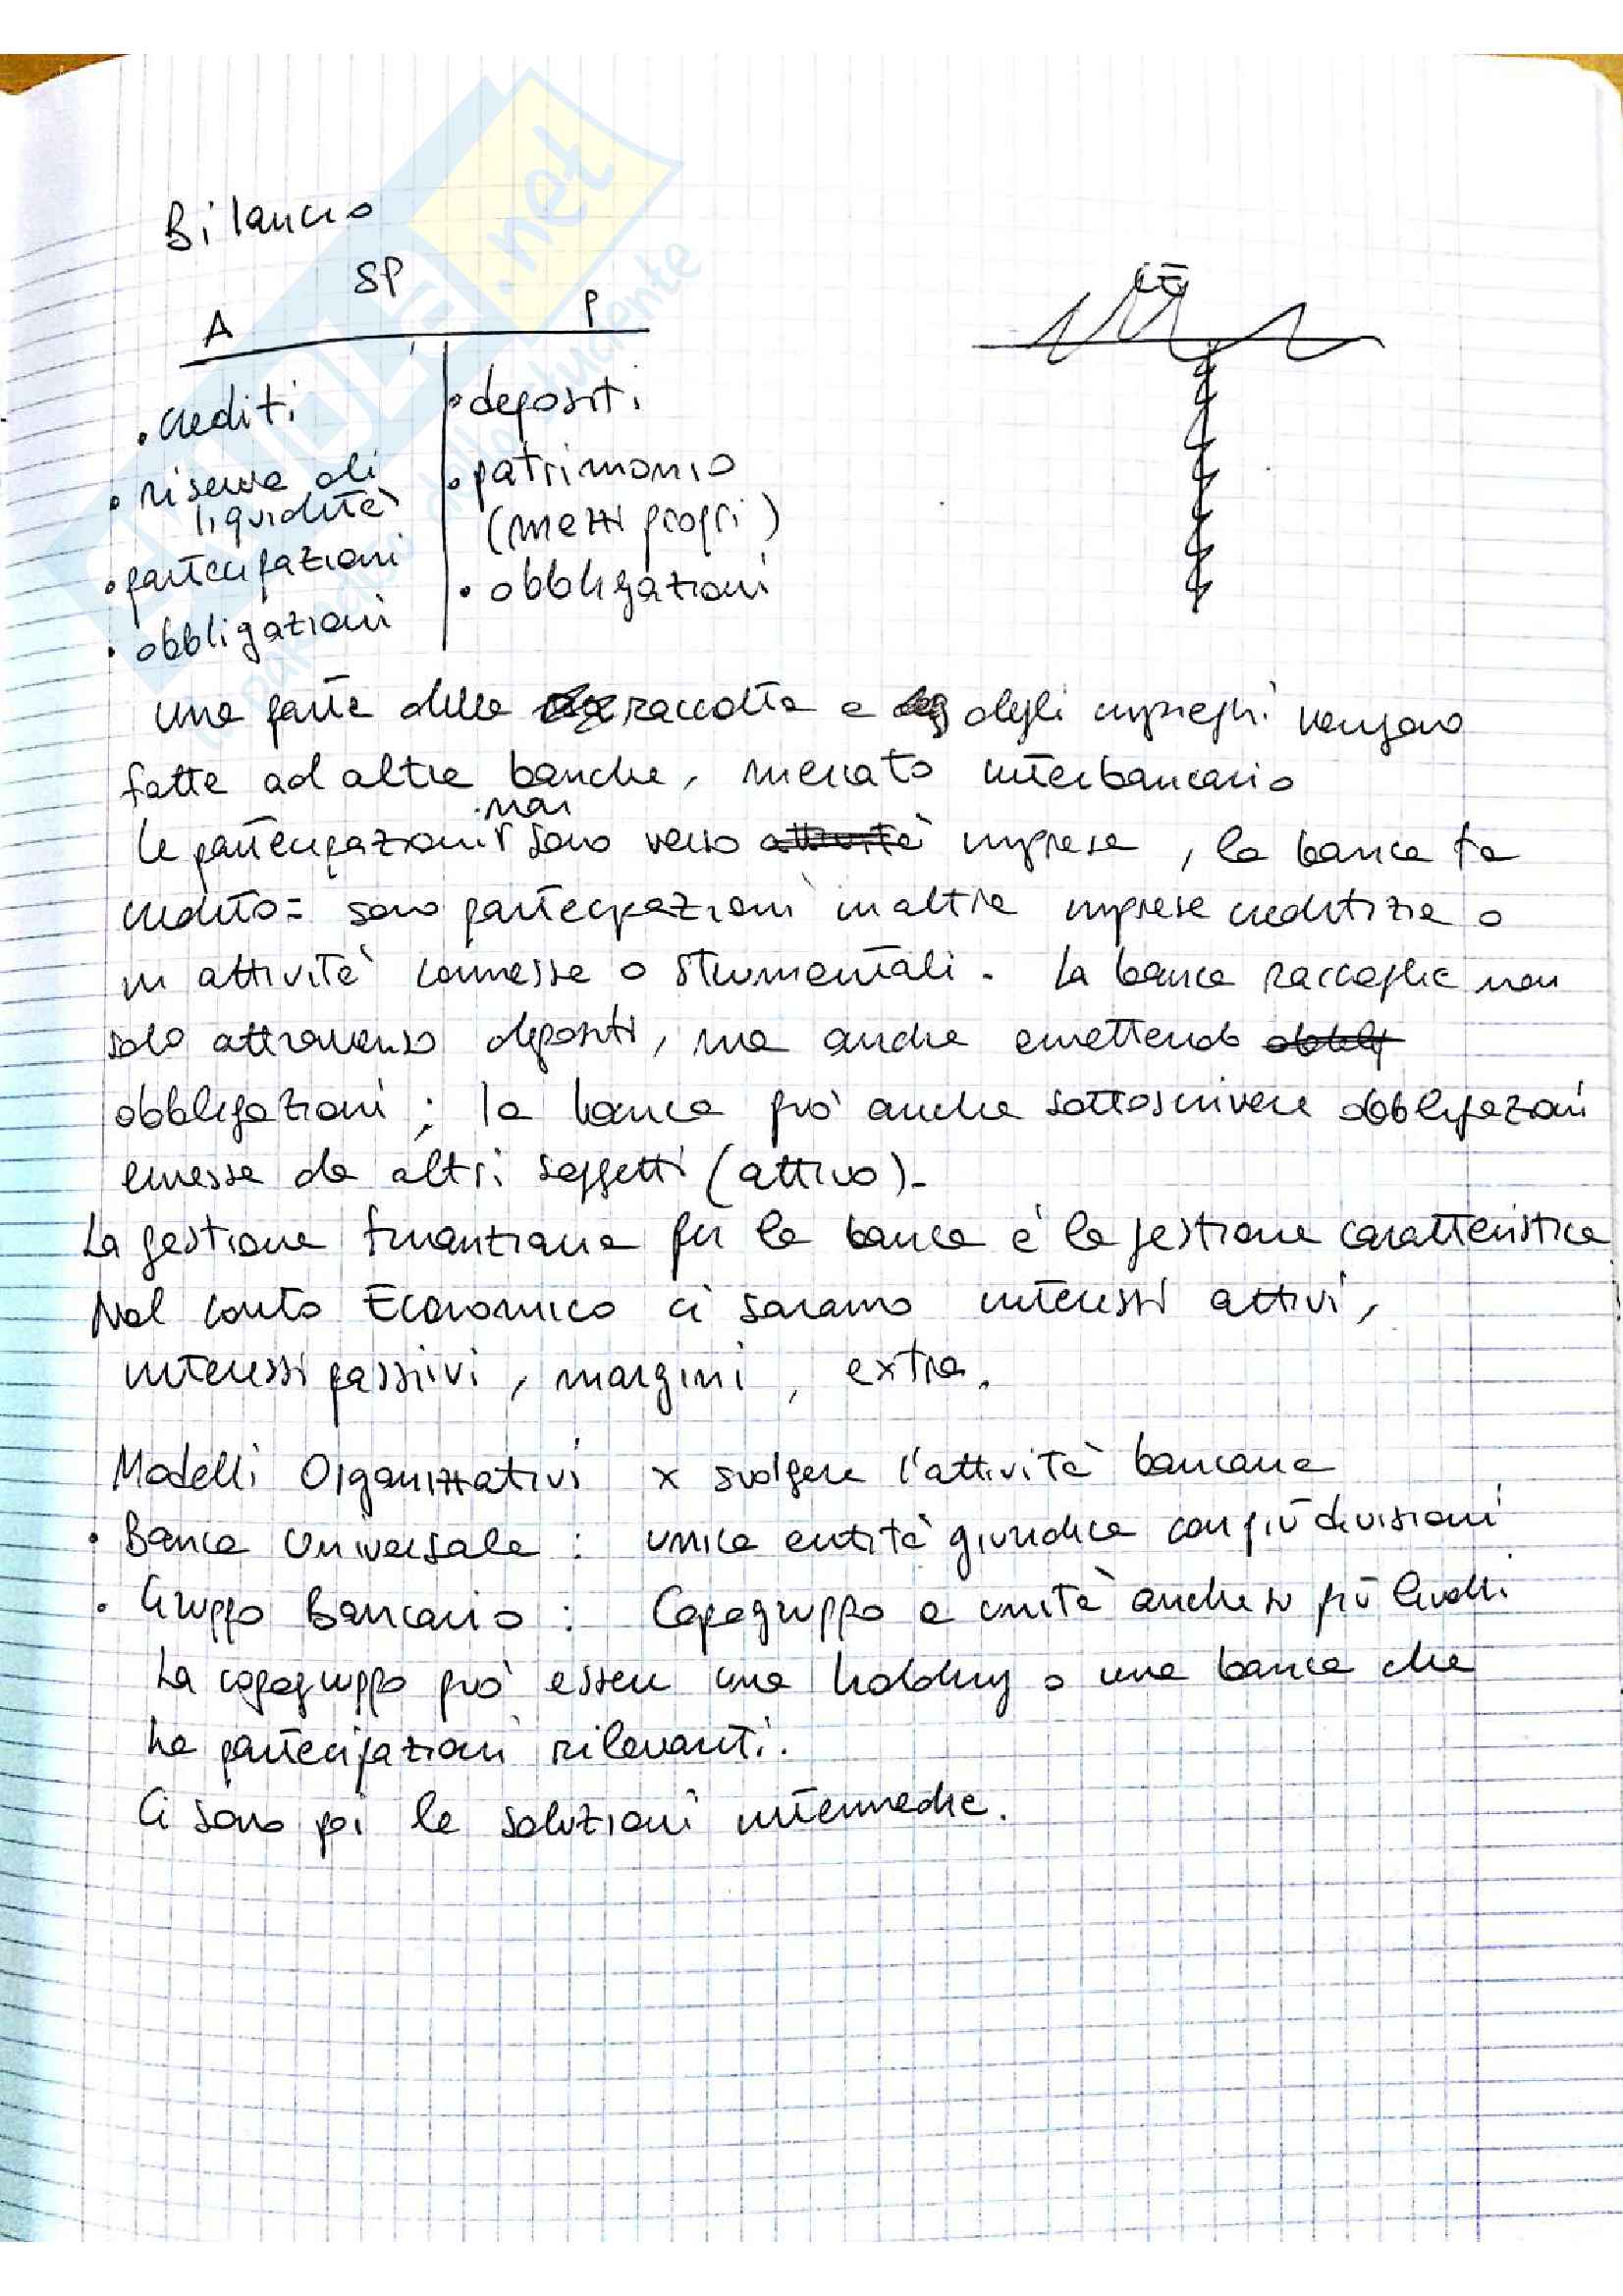 Bilancio
SP
A P
CE
• crediti • depositi
• riserve di • patrimonio
liquidità (mezzi propri)
• partecipazioni • obbligazioni
• obbligazioni
una parte della raccolta e degli impieghi vengono
fatte ad altre banche, mercato interbancario
non
le partecipazioni sono verso attività imprese, la banca fa
credito = sono partecipazioni in altre imprese creditizie o
in attività connesse o strumentali. La banca raccoglie non
solo attraverso depositi, ma anche emettendo
obbligazioni; la banca può anche sottoscrivere obbligazioni
emesse da altri soggetti (attivo).
La gestione finanziaria per la banca è la gestione caratteristica
Nel conto Economico ci saranno interessi attivi,
interessi passivi, margini, extra.
Modelli Organizzativi x svolgere l'attività bancaria
• Banca Universale: unica entità giuridica con più divisioni
• Gruppo Bancario: Capogruppo e unità anche su più livelli
La capogruppo può essere una holding o una banca che
ha partecipazioni rilevanti.
Ci sono poi le soluzioni intermedie.
.net